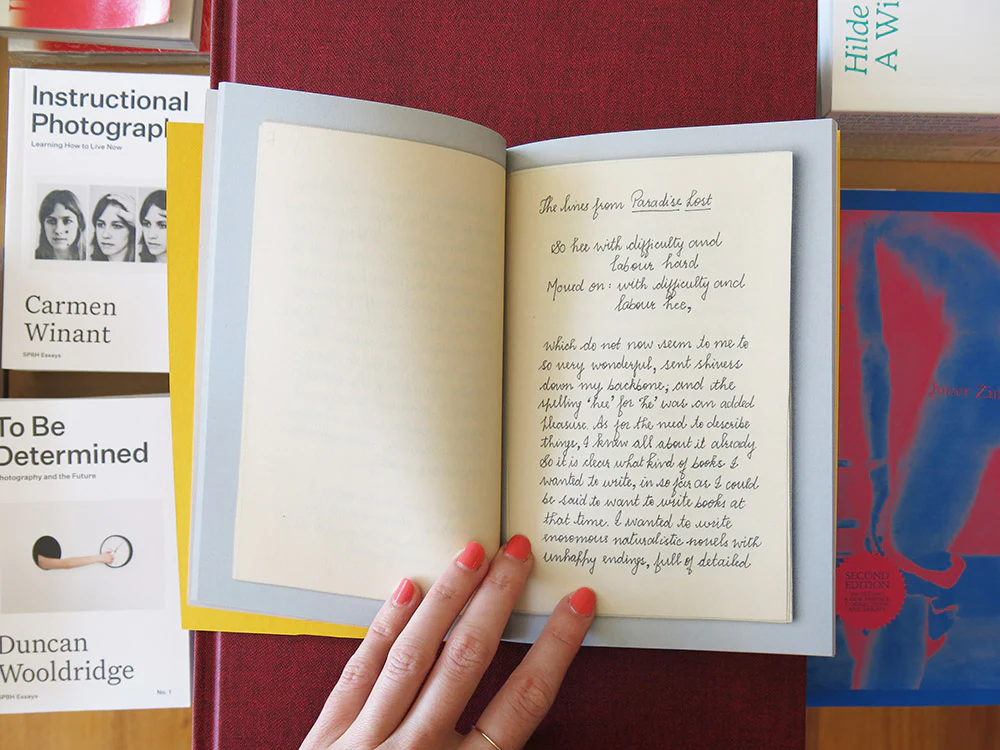 Instructional
Photograph
Learning How to Live Now
Carmen
Winant
SPBH Essays
To Be
Determined
Photography and the Future
Duncan
Wooldridge
SPBH Essays
No. 1
The lines from Paradise Lost
So hee with difficulty and
labour hard
Moved on: with difficulty and
labour hee,
which do not now seem to me to
so very wonderful, sent shivers
down my backbone; and the
spelling 'hee' for 'he' was an added
pleasure. As for the need to describe
things, I knew all about it already
So it is clear what kind of books I
wanted to write, in so far as I could
be said to want to write books at
that time. I wanted to write
enormous naturalistic novels with
unhappy endings, full of detailed
Hilde
A Wi
SECOND
EDITION